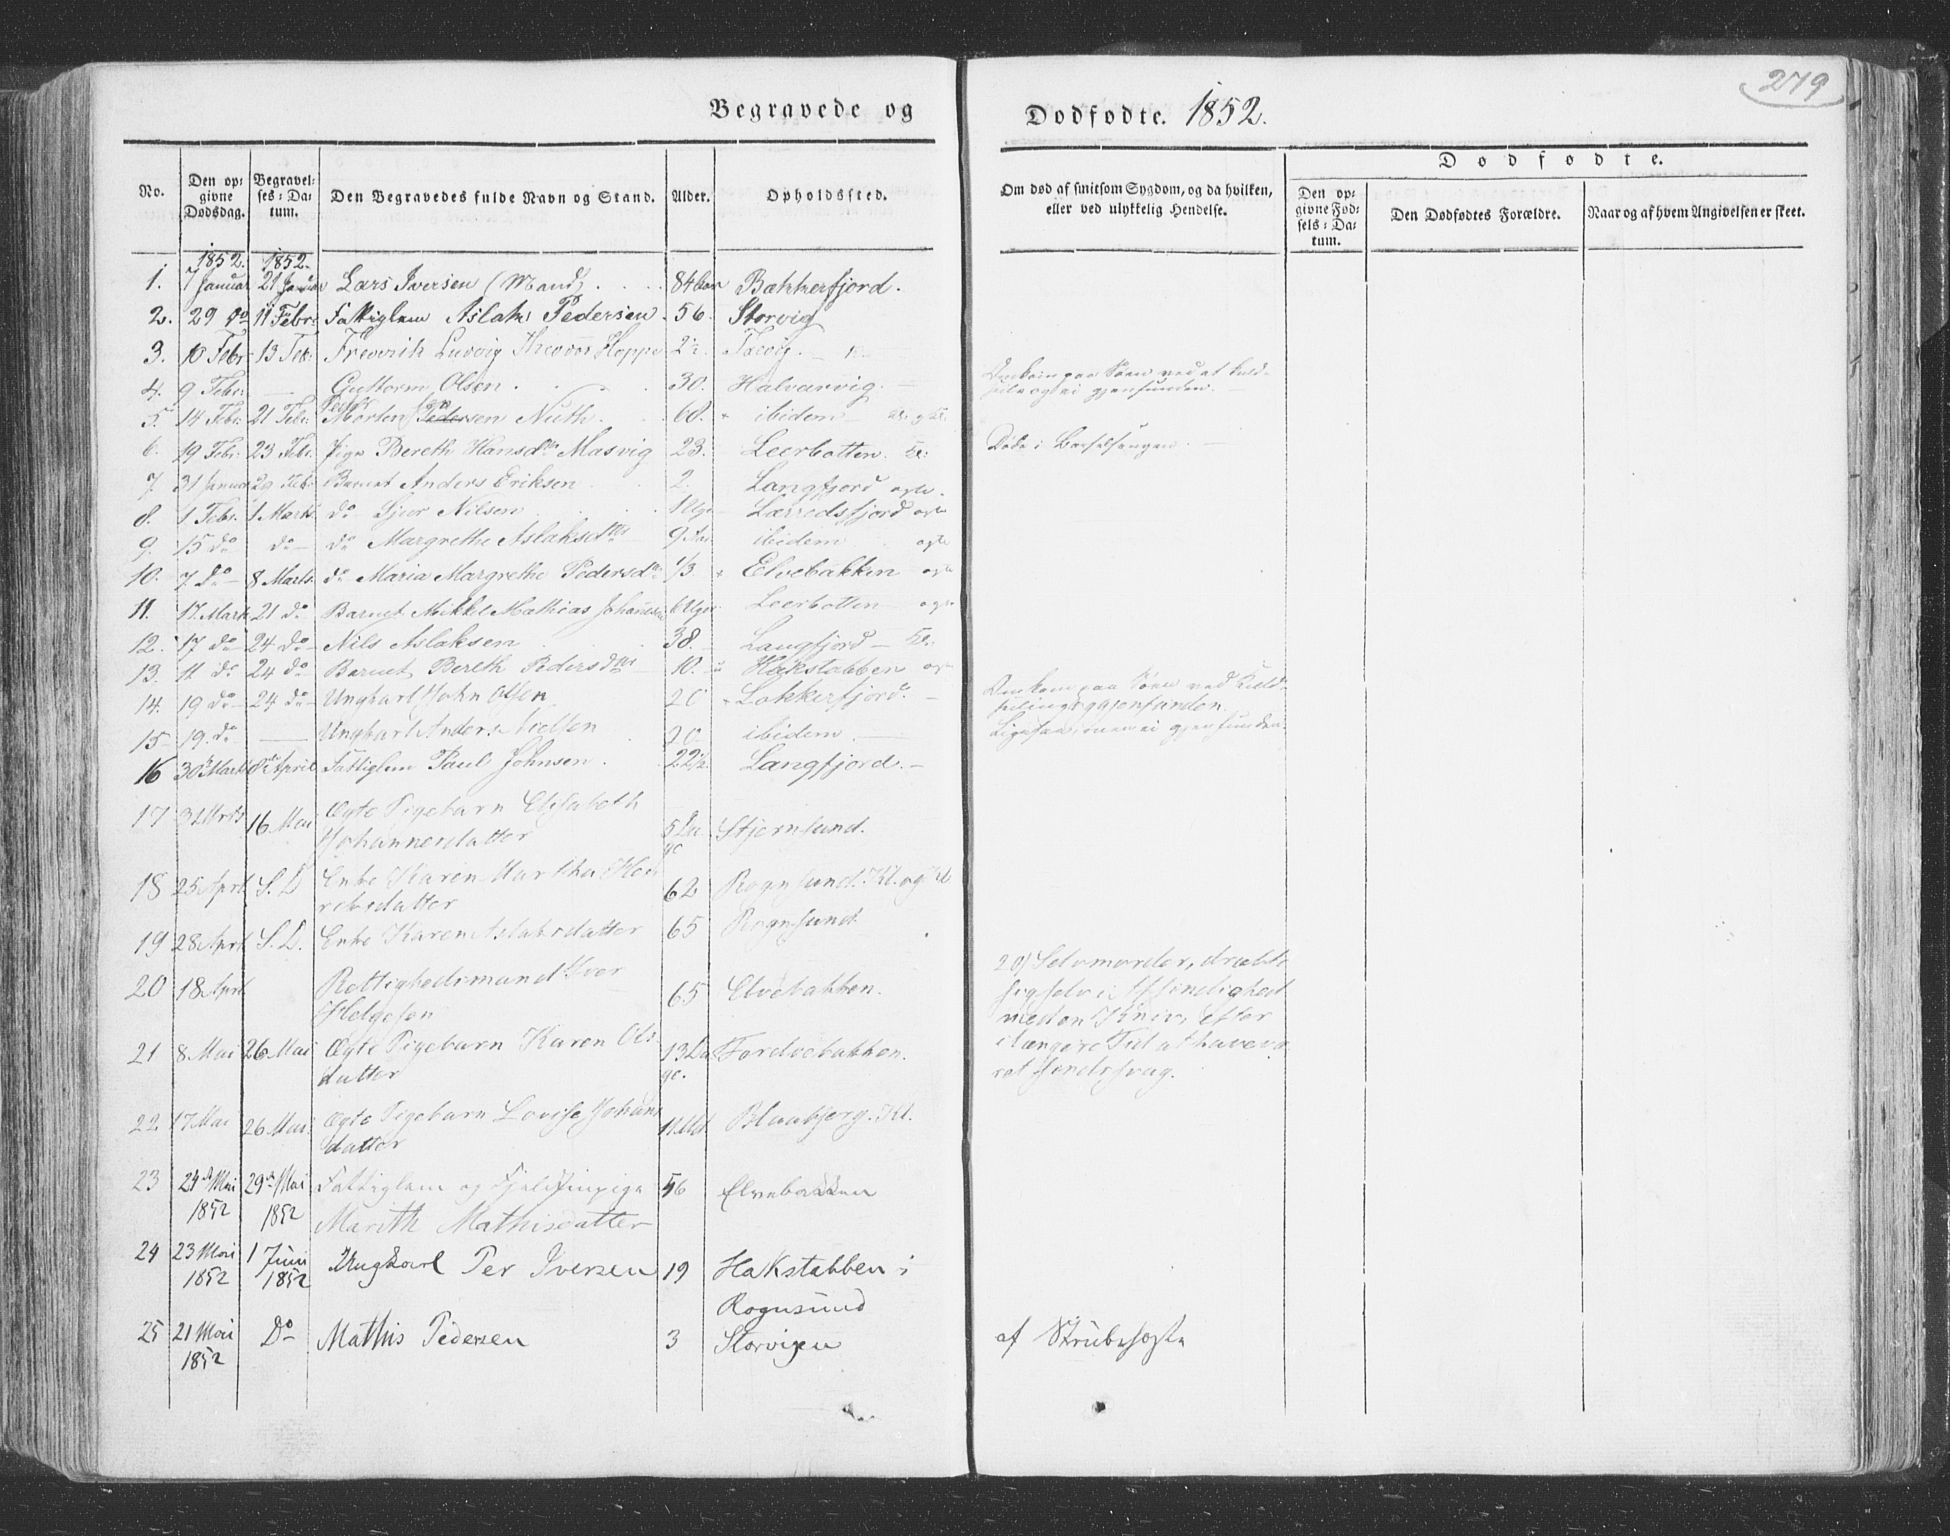 279
Begravede og Dødfødte. 1852.
Dødfødte.
No. Den opgivne Dødsdag. Begravelses-Datum. Den Begravedes fulde Navn og Stand. Alder. Opholdssted. Om død af smitsom Sygdom, og da hvilken, eller ved ulykkelig Hendelse. Den opgivne Fødsels-Datum. Den Dødfødtes Forældre. Naar og af hvem Angivelsen er skeet.
1852. 1852.
1. 7 Januar 21 Januar Lars Iversen (Mand) 84 Bækkerfjord.
2. 29 do 11 Febr: Fattiglem Aslak Pedersen 56. Storvig
3. 10 Febr: 13 Feb: Frederik Ludvig Theodor Hoppe 2½. Talvig.
4. 9 Febr: — Guttorm Olsen 30. Halvarvig. Omkom paa Søen ved at kuldseile og ei gjenfunden.
5. 14 Febr: 21 Febr: Morten Pedersen Nuth. 60. ibidem
6. 19 Febr: 23 Feb: Pige Bereth Hansdtr Masvig 23. Leerbotten. Døde i Barselsengen.
7. 31 Januar 29 Feb: Barnet Anders Eriksen 2. Langfjord ægte.
8. 1 Febr: 1 Marts. do Sjur Nilsen 1 Uge Lærredsfjord ægte
9. 15 do do do Margrethe Aslaksdtr 9 ibidem ægte
10. 7 do 8 Marts. do Maria Margrethe Pedersdtr 1/3 Elvebakken ægte
11. 17. Marts 21 do Barnet Mikkel Mathias Johannesen 6 Uger Leerbotten ægte
12. 17 do 24 do Nils Aslaksen 38. Langfjord
13. 11 do 24 do Barnet Bereth Pedersdtr 10. Hakstabben ægte
14. 19 do 24 do Ungkarl John Olsen 20 Lokkerfjord. Omkom paa Søen ved Kuldseiling, gjenfunden.
15. 19. do — Ungkarl Anders Nielsen 20 ibidem. Ligesaa, men ei gjenfunden.
16 30 Marts 8de April Fattiglem Paul Johnsen 22½ Langfjord.
17 31 Marts 16 Mai Ægte Pigebarn Elisabeth Johannesdatter 5 Dage Stjernsund.
18 25 April S. D Enke Karen Martha Henriksdatter 62 Rognsund. Kl. og Kl
19 28 April S. D. Enke Karen Aslaksdatter 65 Rognsund.
20 18 April Rettighedsmand Iver Helgesen 65 Elvebakken. 20) Selvmorder, dræbte sig selv i Afsindighed med en Kniv, efter i længere Tid at have været sindssvag.
21 8 Mai 26 Mai Ægte Pigebarn Karen Olsdatter 13 Dage. Jordvebakken.
22 17 Mai 26 Mai Ægte Pigebarn Lovise Johansdatter 11 Mdr Blaabjerg. Kl.
23 24de Mai 1852 29de Mai 1852 Fattiglem og Fjeldfinpige Marith Mathisdatter 56 Elvebakken
24 23 Mai 1852 1 Juni 1852 Ungkarl Per Iversen 19 Hakstabben i Rognsund
25 21 Mai 1852 Do Mathis Pedersen 3 Storvigen af Strubehoste